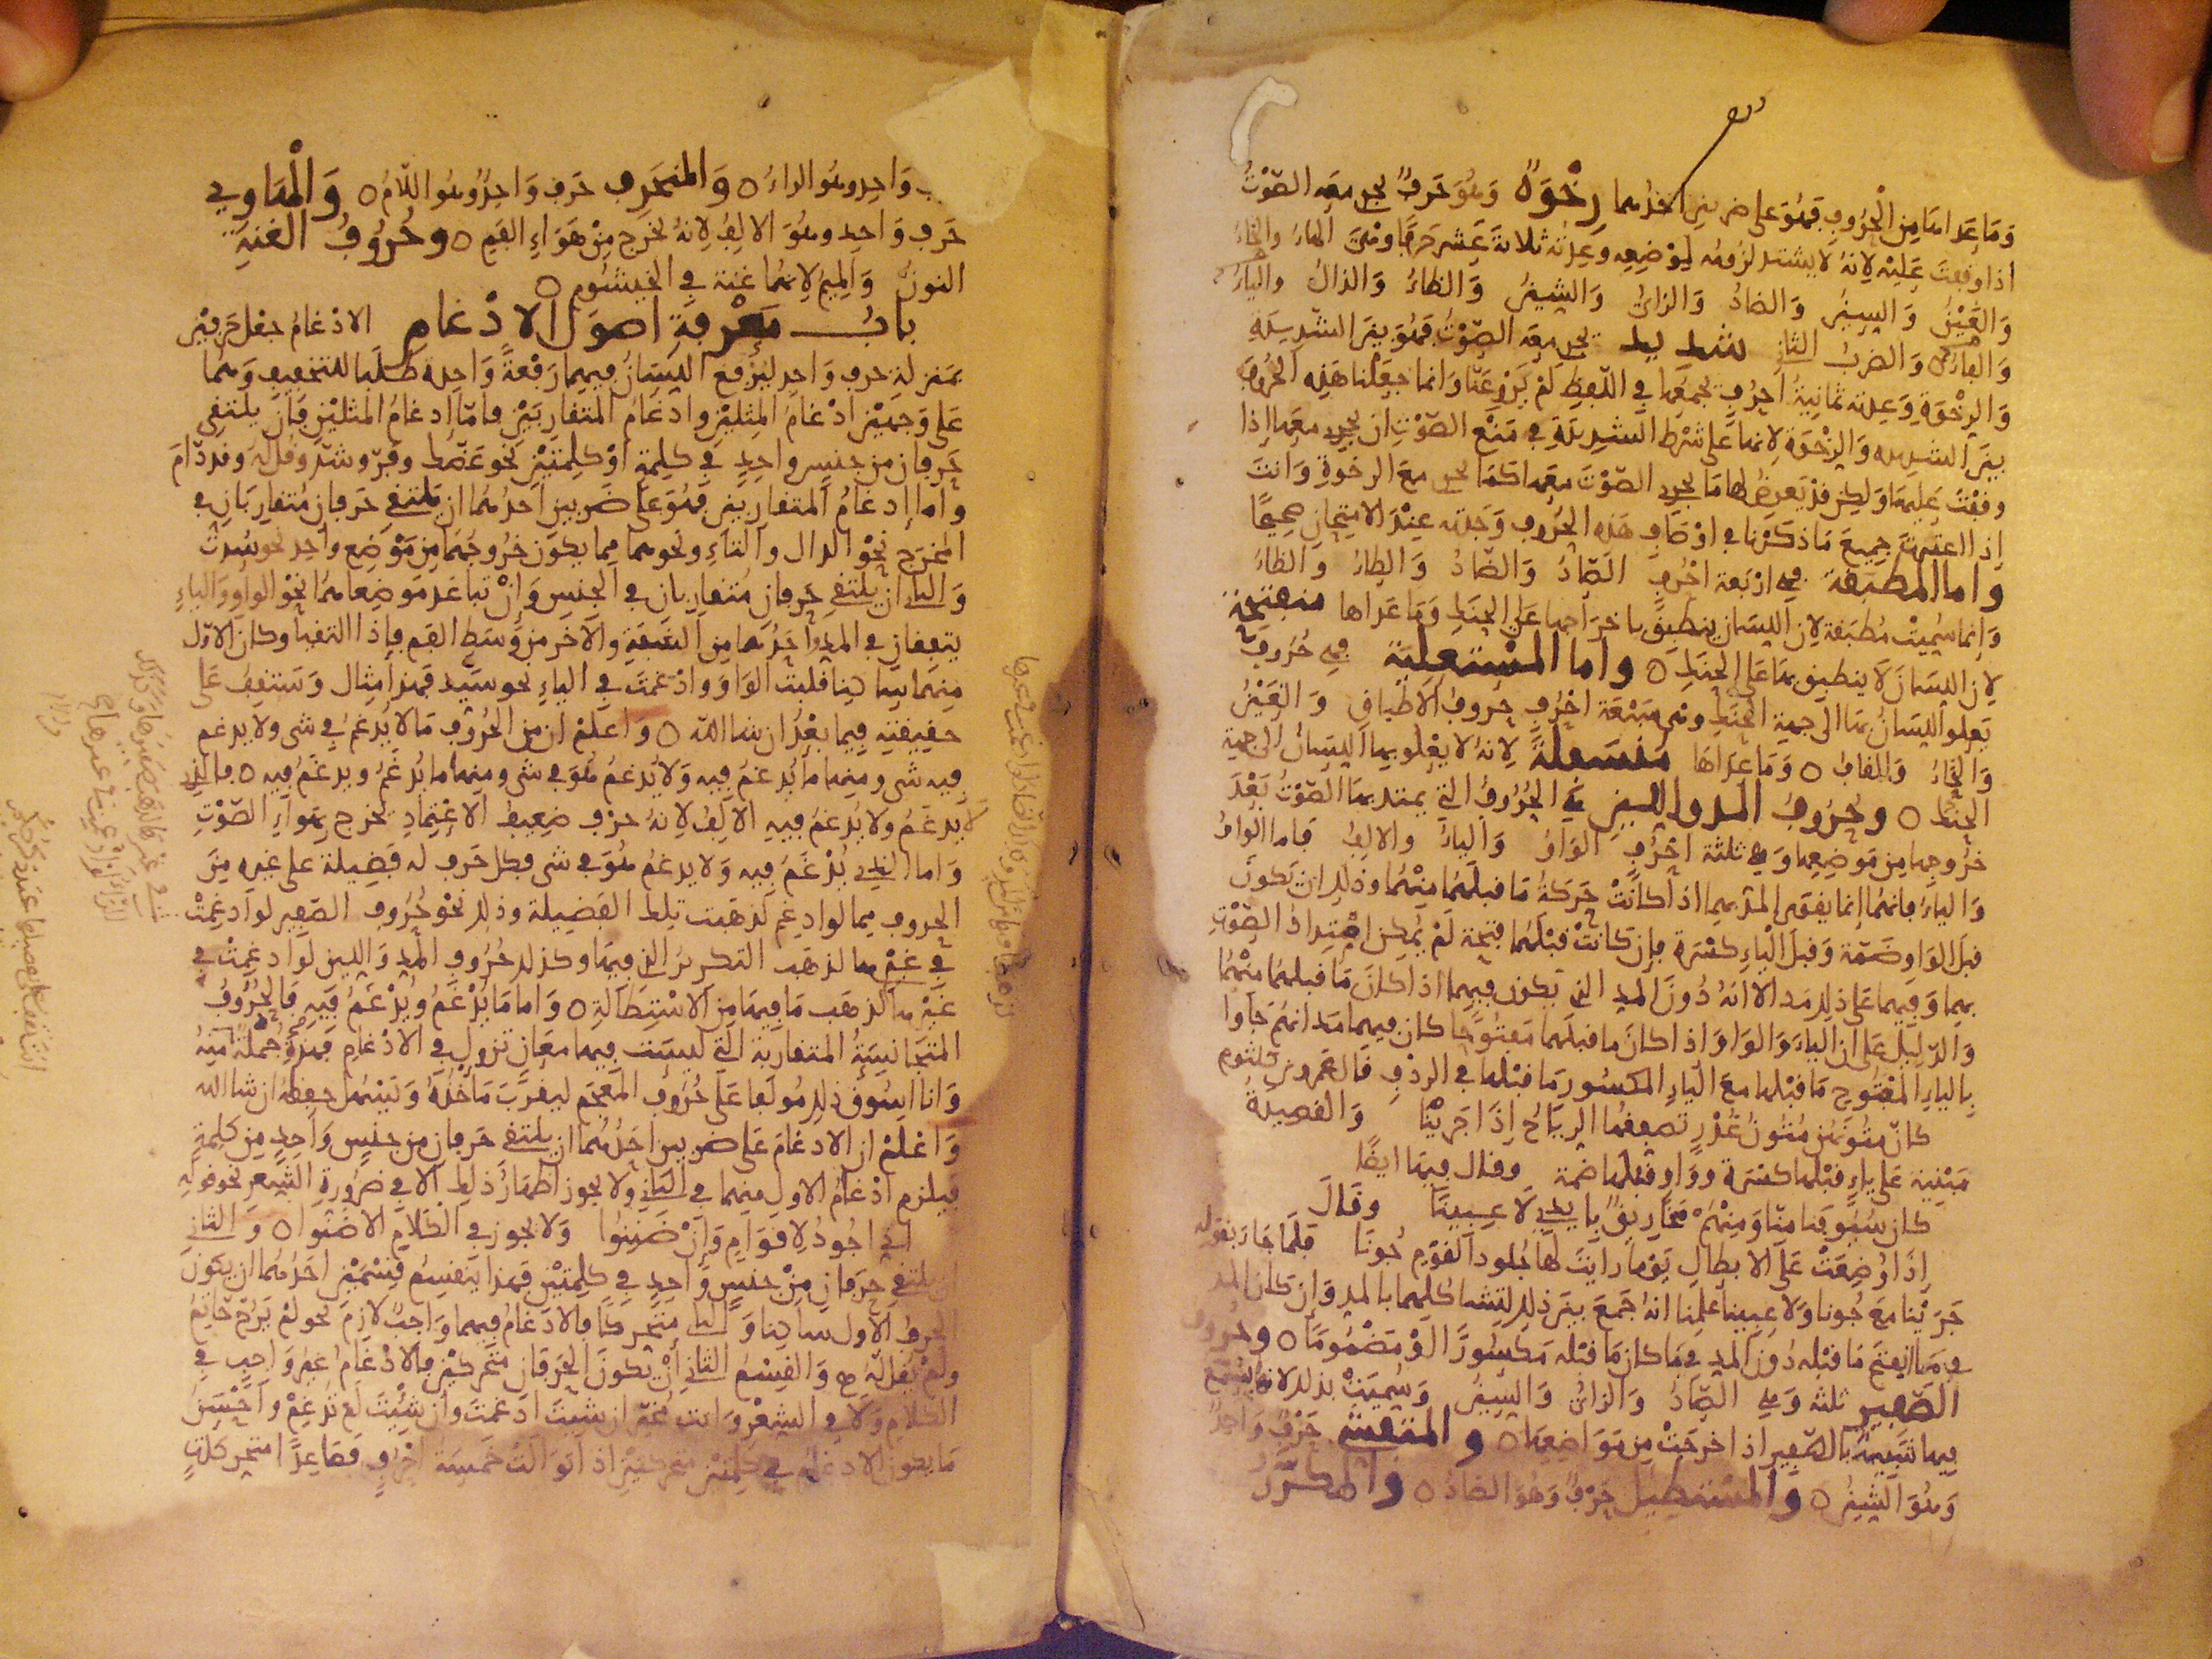 وَمَا عَدَاهَا مِنَ الْحُرُوفِ فَهُوَ عَلَى ضَرْبَيْنِ أَحَدُهُمَا رِخْوَةٌ وَهُوَ حَرْفٌ يجري معه الصَّوْتُ
اذا وقفت عَلَيْهِ لأنه لا يشتد لزومه لِمَوْضِعِه وعدته ثلاثة عَشر حَرفًا وهي الهاءُ والحَاءُ
وَالغَيْنُ وَالسينُ وَالصَادُ وَالزايُ وَالشينُ وَالظاءُ وَالذالُ والثاءُ
وَالفاءُ وَالضربُ الثاني شديد يجري معه الصَّوْتُ فهُوَ بين الشديدة
وَالرِخْوَةِ وَعدته ثمانِيَةُ احْرُفٍ يجمعها في اللّفظِ لَمْ يَرْوِ عَنّا وَانما جعلنا هَذِهِ الحُرُوفَ
بين الشديده وَالرخْوَة لانها عَلى شرط الشديدة في مَنْع الصّوْتِ ان يجري معها اذا
وقفْتَ عَليهَا وَلكِن قد يَعرِضُ لها مَا يجري الصّوْتَ معها كمَا يجري معَ الرخوة وَانتَ
إذا اعتبرتَ جميعَ مَا ذكَرْنا في اوْصَافِ هَذه الحُرُوفِ وَجدته عِنْدَ الامتِحانِ صحِيحًا
واما المطبقة فهي ارْبَعة احْرُفٍ الصّادُ وَالضّادُ وَالطاءُ وَالظاءُ
وَإنما سُمِيتْ مُطبَقة لان اللسَان ينطبق باخراجها عَلى الحنكِ وَمَا عَداها منفتحة
لان اللسَانَ لا ينطبق بهَا عَلى الحنَكِ ٥ واما المسْتعلِيَة فهي حُرُوف
يَعلو اللسَانُ بهَا الى جهة الحنكِ وهي سَبْعَة احْرُفٍ حُروفُ الاطباقِ وَالغَيْنُ
وَالخَاءُ وَالقافُ ٥ وَمَا عدَاهَا منسفلة لانهُ لا يَعْلو بها اللسَانُ الى جهة
الحنك ٥ وحُرُوفُ المد واللين هي الحُرُوفُ التي يمتد بهَا الصّوْتُ بَعْدَ
خرُوجها مِن مَوضِعِها وَهي ثلثة احْرُفٍ الوَاوُ وَالياءُ والالِفُ فاما الواوُ
وَالياءُ فانهما إنما يقوَى المدّ بهما اذا كانتْ حَركة مَا قبلَهُما مِنْهُما وَذلك ان تكون
قبل الوَاوِ ضَمّة وَقبلَ الْياءِ كسْرَة فإن كَانَتْ قبْلَهُما فتحَة لَمْ يُمكِن امْتِدادُ الصّوْتِ
بهما وَفيهما عَلى ذلك مَد الا انهُ دُونَ المدِ الذي يكون فيهما اذا كانَ مَا قبلهما منْهُما
وَالدّليل عَلى ان الياءَ وَالوَاوَ اذا كانَ ما قبلهما مَفتُوحًا كان فيهما مَد انهُم جَاوا
بِالياءِ المفتُوحِ مَا قبْلها معَ الياءِ المكسُور مَا قبْلها في الردْفِ قال عَمْرُو بن كلثوم
كانّ متُونَهُن مُتونُ غُدْرٍ تصفقُها الرِيَاحُ إذَا جَرَيْنا وَالقصيدة
مَبْنِية عَلى ياءٍ قبْلها كسْرَة وَوَاوٍ قبْلها ضمة وقال فيها ايضًا
كان سُيُوفنا مِنّا وَمِنْهُمْ مَخَارِيقٌ بِأَيْدي لَاعِبِينَا وقَالَ
إذَا وُضِعَتْ عَلَى الابطالِ يَوْمًا رايتَ لَهَا جُلودَ القوْمِ جُونَا فلَمَا جَاءَ بقوله
جَرَيْنا مَعَ جُونا وَلاعِبينا عَلِمنا انهُ جَمَعَ بينَ ذلك لتشاكلهما بالمد وَإن كانَ المد
في مَا انفتح مَا قبْله دُونَ المد في مَا كان مَا قبْله مَكسُورًا اوْ مَضْمُومًا ٥ وحُرُوفُ
الصّفير ثلثة وَهي الصّادُ وَالزايُ وَالسينُ وَسُميَتْ بذلك لانهُ يسْمَع
فيها شبيهٌ بالصّفير اذا خرجَتْ مِن مَوَاضِعِهَا ٥ والمتفشي حَرْفٌ وَاحِدٌ
وَهُوَ الشِينُ ٥ والمستطيل حَرْفٌ وَهُوَ الضادُ ٥ والمكرَّرُ
وَاحِد وهُو الراءُ ٥ وَالمنحَرِف حَرف وَاحِدٌ وهُو اللّامُ ٥ وَالْهَاوي
حَرف وَاحِد وهُوَ الالِفُ لانهُ يخرج مِنْ هَوَاءِ الفمِ ٥ وحُرُوفُ الغنة
النونُ وَالميمُ لانهُما غنة في الخيشُوم ٥
بابُ مَعْرفة اصول الادْغام الادْغامُ جعْل حَرفيْن
بمَنزلة حرف وَاحِد ليرْفع اللِسَانُ فيهما رَفْعةً وَاحِدة طَلَبا للتخفيف وَهُما
عَلى وَجهيْن ادْغامُ المِثليْن وادغامُ المتقارِبَيْن فأمّا إدغامُ المثليْن فان يلتقي
حَرفان مِن جنس واحِدٍ في كلِمةٍ اوْ كلِمتيْن نحو عَضّ وفرّ وشدّ وقُل لَه وقد دّامَ
واما إدغامُ المتقاربين فهُوَ عَلى ضربين احدُهُما ان يلتقي حَرفان مُتقاربَان في
المخرَج نحْو الدال وَالتاءِ ونحوهما مما يكون خرُوجُهُما مِن مَوْضِع واحِد نحو سُدتُ
وَالثاني ان يلتقي حَرفان مُتقاربان في الجنسِ وَإنْ تباعَد مَوضِعاهُما نحْو الواوِ وَالياءِ
يتفِقان في المد واحَدُهُما مِن الشفةِ والآخر من وَسَط الفم فإذا التقيا وكان الاوّل
مِنهما سَاكِنا قلبتَ الوَاوَ وادْغمتَ في الياءِ نحو سَيّد فهذا مِثال وَسَتقِفُ عَلى
حقيقتِهِ فيما بعْدُ ان شا الله ٥ وَاعلَمْ ان مِن الحُرُوفِ مَا لا يُدغمُ في شى ولا يدغم
فيه شى ومِنها ما يُدغمُ فيه وَلا يُدغمُ هُوَ في شى ومنها ما يُدْغمُ ويدغمُ فيه ٥ فالذي
لا يدغمُ ولا يُدغمُ فيه الالِفُ لانهُ حرْف ضعيف الاعتِمادِ تخرج بهَواءِ الصّوْتِ
وَاما الذي يُدْغَمُ فيه وَلا يدغمُ هُوَ في شى فكل حَرف له فضِيلة على غيره مِنَ
الحروف مما لو ادغم لذهَبت تلك الفضِيلة وذلك نحْو حُرُوفِ الصّفير لو ادغِمتْ
في غيْرها لذهَب التكريرُ الذي فيها وكذلك حُرُوف المد وَاللين لو ادغِمتْ في
غيْرها لذهَب مَا فيهَا مِن الاسْتِطالةِ ٥ وَاما مَا يُدْغمُ ويُدْغمُ فيه فالحُرُوفُ
المتجَانِسَة المتقاربة التي ليسَت فيها معَانٍ تزول في الادْغام فهذِهِ جُملة مِنهُ
وَانا اسُوق ذلك مُولّفا عَلى حُرُوف المعجَم ليقرُب مَأخَذُهُ وَيَسْهُل حِفظه ان شا الله
وَاعْلَمْ ان الادغامَ عَلى ضربين احَدُهُما ان يلتقي حَرفان مِن جنسٍ وَاحِدٍ مِن كلمةٍ
فيلزم ادْغامُ الاول مِنهما في الثاني ولا يجوز اظهارُ ذلك الا في ضرُورةِ الشعر نحو قوله
اني اجُودُ لاقوَامٍ وَإنْ ضَنِنُوا وَلا يجوز في الكلام الا ضَنّوا ٥ وَالثاني
ان يلتقي حرفان مِنْ جنس وَّاحِدٍ في كلمتيْن فهذا ينقسِم قسْمَيْن احَدُهُما ان يكون
الحرفُ الاول ساكِنا وَالثاني متحَركا فالادغامُ فيهما وَاجبٌ لازم نحو
ولمْ يَقُل لّهُ وَالقِسْمُ الثاني أنْ يكون الحَرفان متحركيْن فالادْغامُ غيرُ وَاجِبٍ في
الكلام وَلا في الشعْر وَانت مُخيّر ان شيتَ ادغمتَ وان شيْتَ لَمْ تُدغِمْ وَأحْسَنُ
مَا يكون الادغامُ في كلمتين متحركيْن اذا توَالتْ خمسَة احْرُف فصَاعِدًا متحركاتٍ